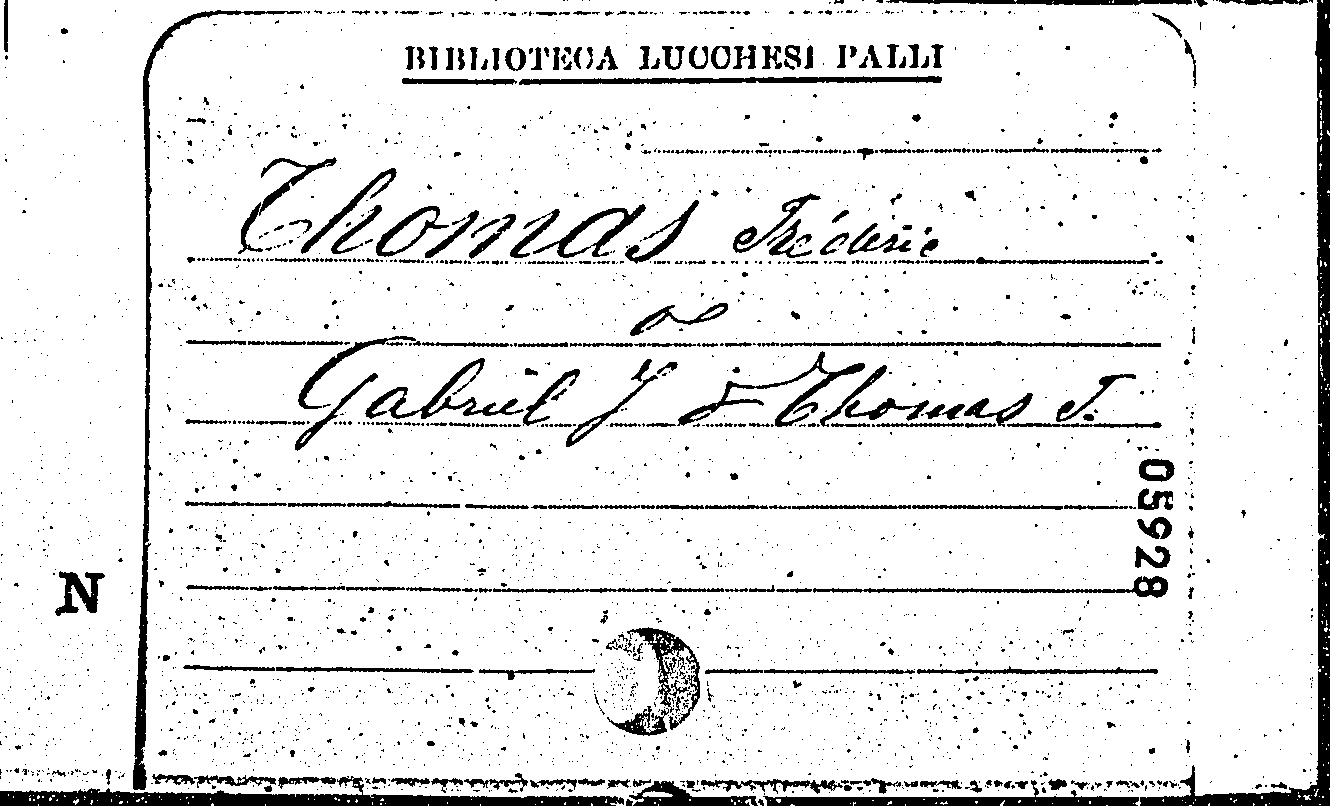 BIBLIOTECA LUCCHESI PALLI
Thomas Fréderic
Gabriel J & Thomas F.
05928
N